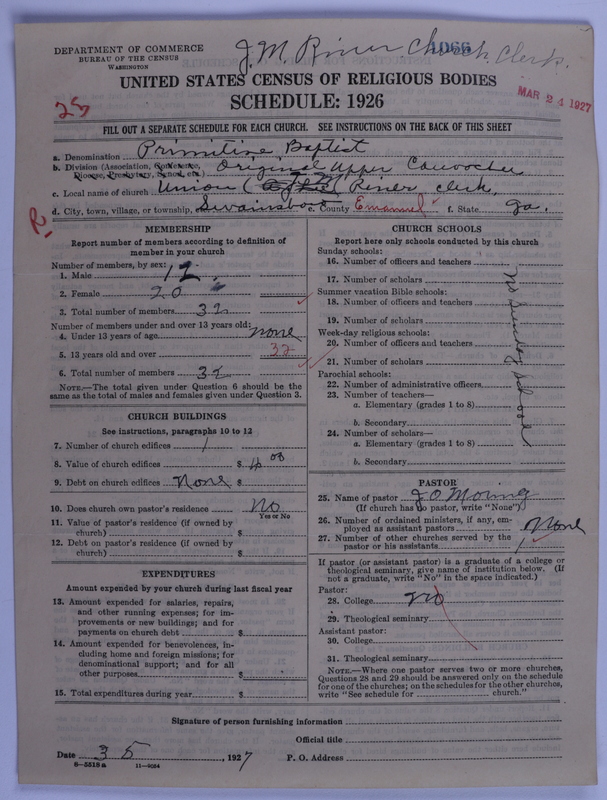 DEPARTMENT OF COMMERCE
BUREAU OF THE CENSUS
WASHINGTON
J. M. Riner Church Clerk.
1066
UNITED STATES CENSUS OF RELIGIOUS BODIES
SCHEDULE: 1926
MAR 24 1927
FILL OUT A SEPARATE SCHEDULE FOR EACH CHURCH. SEE INSTRUCTIONS ON THE BACK OF THIS SHEET
a. Denomination Primitive Baptist
b. Division (Association, Conference, Diocese, Presbytery, Synod, etc.) Original Upper Canoochee
c. Local name of church Union ( Riner clerk,
d. City, town, village, or township, Swainsboro e. County Emanuel f. State Ga.
MEMBERSHIP
Report number of members according to definition of
member in your church
Number of members, by sex:
1. Male 12
2. Female 20
3. Total number of members 32
Number of members under and over 13 years old:
4. Under 13 years of age none
5. 13 years old and over 32
6. Total number of members 32
NOTE.—The total given under Question 6 should be
same as the total of males and females given under Question 3.
CHURCH BUILDINGS
See instructions, paragraphs 10 to 12
7. Number of church edifices 1
8. Value of church edifices $
9. Debt on church edifices None $
10. Does church own pastor's residence No
Yes or No
11. Value of pastor's residence (if owned by
church) $
12. Debt on pastor's residence (if owned by
church) $
EXPENDITURES
Amount expended by your church during last fiscal year
13. Amount expended for salaries, repairs,
and other running expenses; for im-
provements or new buildings; and for
payments on church debt $
14. Amount expended for benevolences, in-
cluding home and foreign missions; for
denominational support; and for all
other purposes $
15. Total expenditures during year $
CHURCH SCHOOLS
Report here only schools conducted by this church
Sunday schools:
16. Number of officers and teachers
17. Number of scholars
Summer vacation Bible schools:
18. Number of officers and teachers
19. Number of scholars
Week-day religious schools:
20. Number of officers and teachers
21. Number of scholars
Parochial schools:
22. Number of administrative officers
23. Number of teachers—
a. Elementary (grades 1 to 8)
b. Secondary
24. Number of scholars—
a. Elementary (grades 1 to 8)
b. Secondary
No Sunday School
PASTOR
25. Name of pastor J. O.
(If church has no pastor, write "None")
26. Number of ordained ministers, if any, em-
ployed as assistant pastors None
27. Number of other churches served by the
pastor or his assistants 1
If pastor (or assistant pastor) is a graduate of a college or
theological seminary, give name of institution below. (If
not a graduate, write "No" in the space indicated.)
Pastor:
28. College no
29. Theological seminary
Assistant pastor:
30. College
31. Theological seminary
NOTE.—Where one pastor serves two or more churches,
Questions 28 and 29 should be answered only on the schedule
for one of the churches; on the schedules for the other churches,
write "See schedule for church."
Signature of person furnishing information
Official title
Date 3 5, 1927 P. O. Address
8—5518a 11—9054